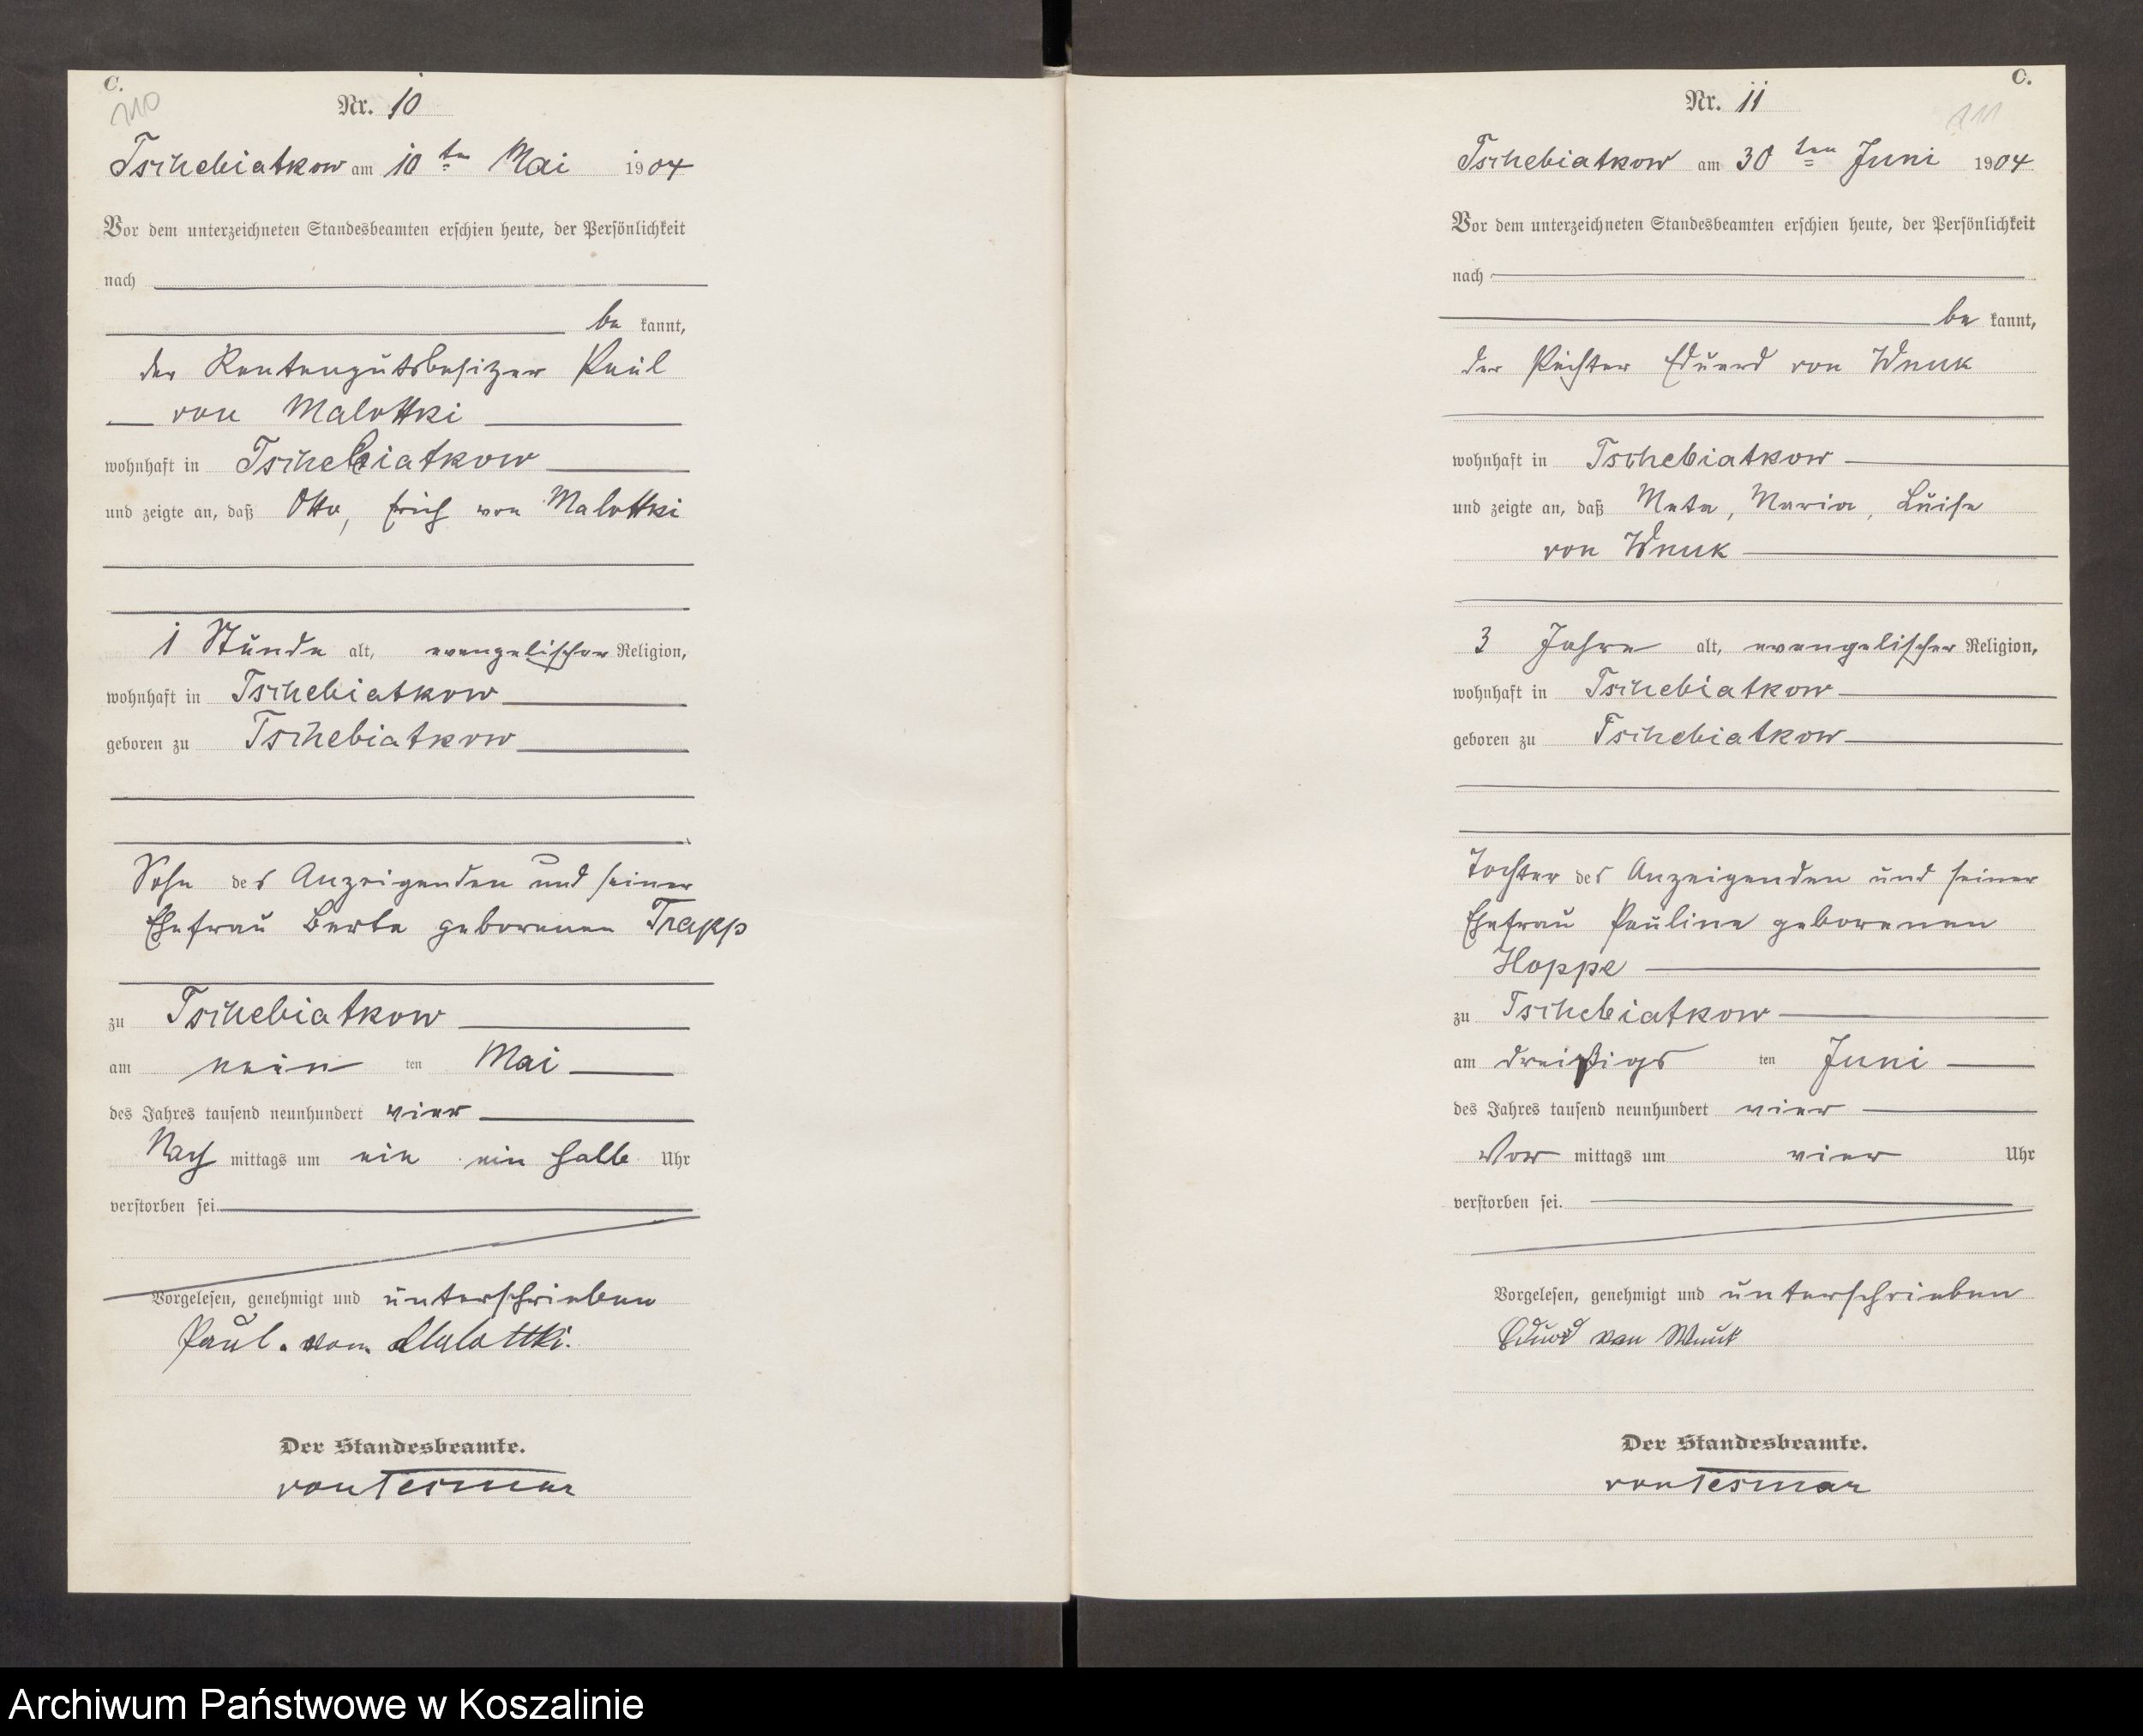 C.
110
Nr. 10
Tschebiatkow am 10ten Mai 1904
Vor dem unterzeichneten Standesbeamten erschien heute, der Persönlichkeit
nach
be kannt,
der Rentengutsbesitzer Paul
von Malottki
wohnhaft in Tschebiatkow
und zeigte an, daß Otto, Erich von Malottki
1 Stunde alt, evangelischer Religion,
wohnhaft in Tschebiatkow
geboren zu Tschebiatkow
Sohn des Anzeigenden und seiner
Ehefrau Berta geborenen Trapp
zu Tschebiatkow
am neun ten Mai
des Jahres tausend neunhundert vier
Nach mittags um ein ein halb Uhr
verstorben sei.
Vorgelesen, genehmigt und unterschrieben
Paul. von Malottki.
Der Standesbeamte.
von Tesmar
C.
111
Nr. 11
Tschebiatkow am 30ten Juni 1904
Vor dem unterzeichneten Standesbeamten erschien heute, der Persönlichkeit
nach
be kannt,
der Pächter Eduard von Wnuk
wohnhaft in Tschebiatkow
und zeigte an, daß Meta, Maria, Luise
von Wnuk
3 Jahre alt, evangelischer Religion,
wohnhaft in Tschebiatkow
geboren zu Tschebiatkow
Tochter des Anzeigenden und seiner
Ehefrau Pauline geborenen
Hoppe
zu Tschebiatkow
am dreißigs ten Juni
des Jahres tausend neunhundert vier
Vor mittags um vier Uhr
verstorben sei.
Vorgelesen, genehmigt und unterschrieben
Eduard von Wnuk
Der Standesbeamte.
von Tesmar
Archiwum Państwowe w Koszalinie